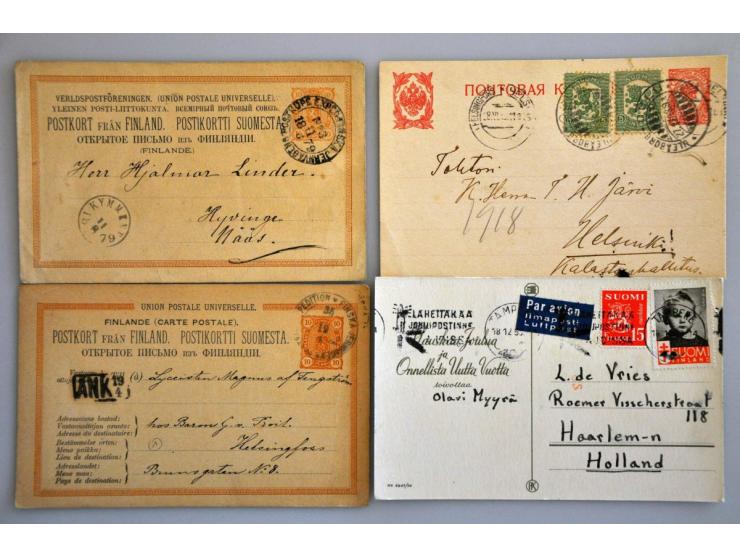 VERLDSPOSTFÖRENINGEN. (UNION POSTALE UNIVERSELLE).
YLEINEN POSTI-LIITTOKUNTA. ВСЕМІРНЫЙ ПОЧТОВЫЙ СОЮЗЪ.
POSTKORT FRÅN FINLAND. POSTIKORTTI SUOMESTA.
ОТКРЫТОЕ ПИСЬМО изъ ФИНЛЯНДІИ.
(FINLANDE.)
Herr Hjalmar Linder.
Hyvinge
Nääs.
79
ПОЧТОВАЯ
ULEÅBORG
Herra T. H. Järvi
1918
Helsinki!
Kalastushallitus.
UNION POSTALE UNIVERSELLE.
FINLANDE (CARTE POSTALE).
POSTKORT FRÅN FINLAND. POSTIKORTTI SUOMESTA.
ОТКРЫТОЕ ПИСЬМО изъ ФИНЛЯНДІИ.
10 10
ANK 19
(à) Lycensten Magnus af
Adressatens bostad:
Vastaanottajan asunto:
Adresse du destinataire:
hos Baron G. v. Troil.
Bestämmelse orten:
Meno paikka:
Lieu de destination:
Helsingfors
Adresslandet:
Meno maa:
Pays de destination:
Brunnsgatan № 8.
Par avion
Ilmaposti
Luftpost
SUOMI
15
SUOMI
FINLAND
Hauskaa Joulua
ja
Onnellista Uutta Vuotta
toivottaa
Olavi Myyrä
L. de Vries
Roemer Visscherstraat
118
Haarlem-n
Holland